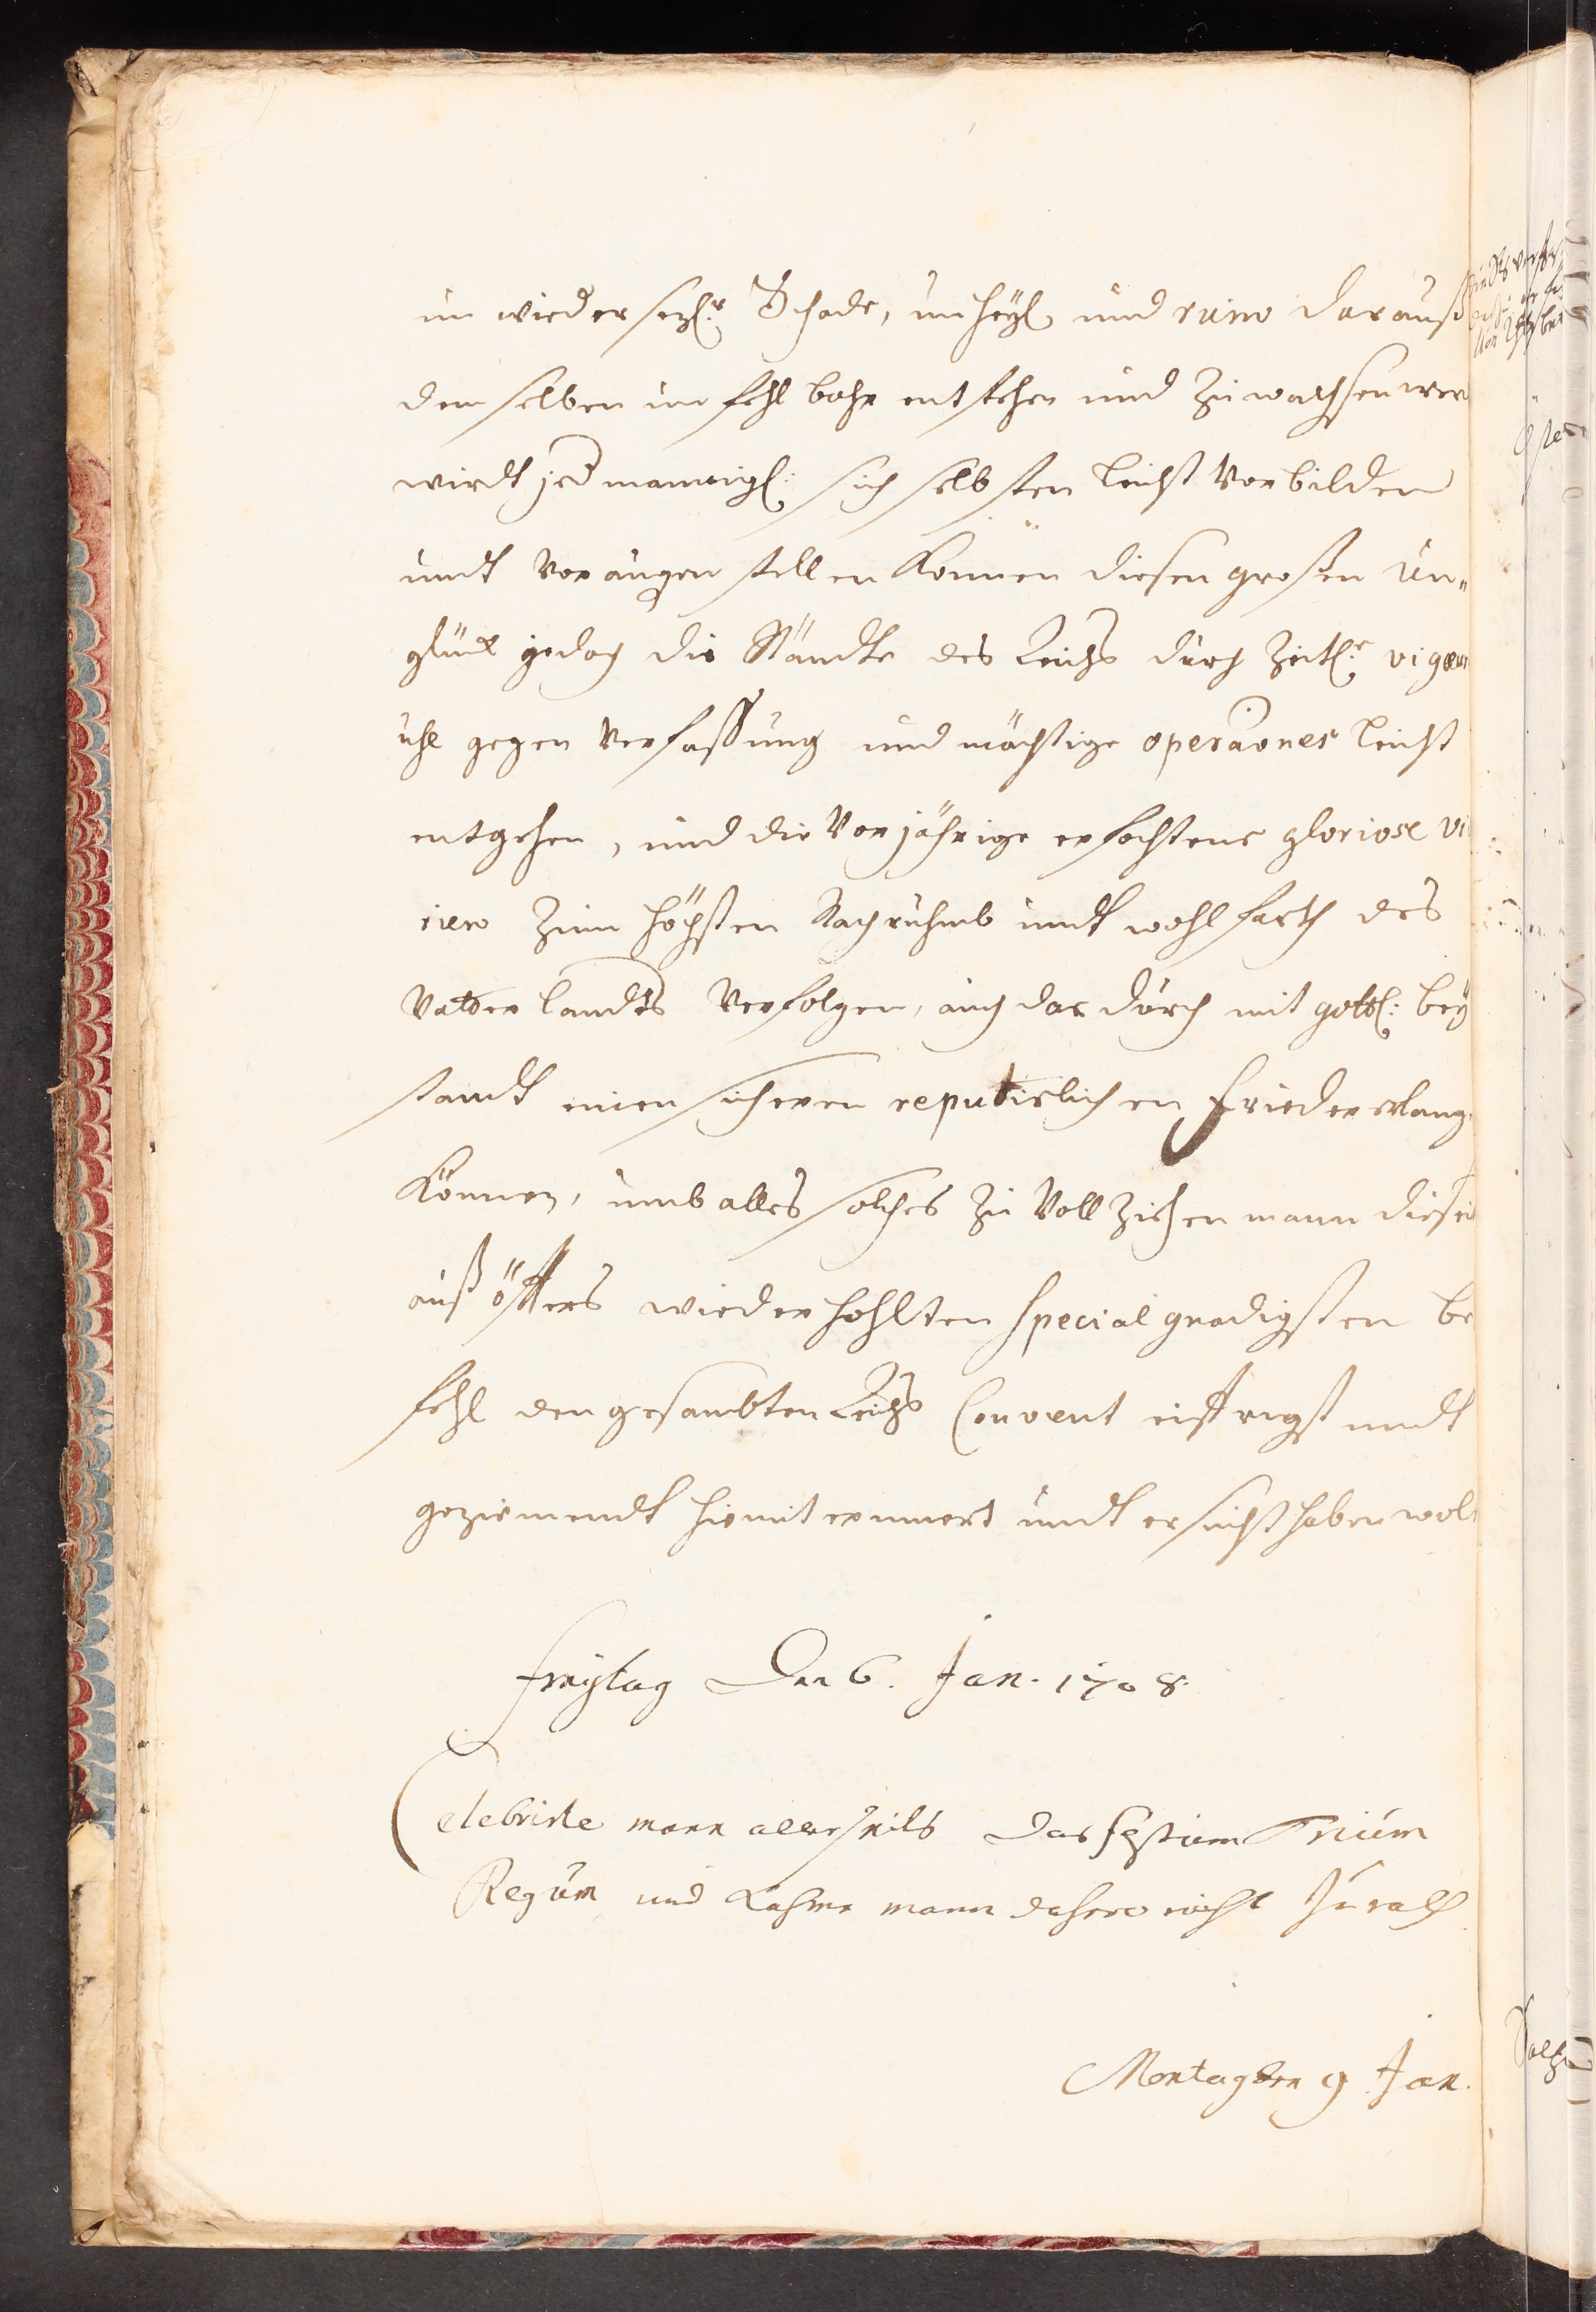 un wiedersezl.r Schade, unheyl und ruin darauß
demselben unfehlbahr entstehen und zuwachsen wer
wirdt jedmannigl: sich selbsten leicht vorbilden
undt vor augen stellen können diesen großen un„
glück jedoch die Ständte des Reichs durch zeitl.e vigou
use gegen verfassung und mächtige operaones leicht
entgehen, und die vorjährige erfochtene gloriose vi
rien zum höchsten Nachruhmb undt wohlfarth des
Vatterlandts verfolgen, auch dardurch mit göttl: bey
standt einen sicheren reputirlichen Frieden erlang
können, umb alles solches zu vollziehen mann dieseit
auß öffters wiederhohlten special gnädigsten be
fehl den gesambten Reichs Convent eiffrigst undt
geziemendt hiemit erinnert undt ersucht haben wol
Freytag Den 6. Jan. 1708.
Celebrirte mann allerseits das festum Trium
Regum und kahme mann dahero nicht zu rath
Montag den 9 Jan.